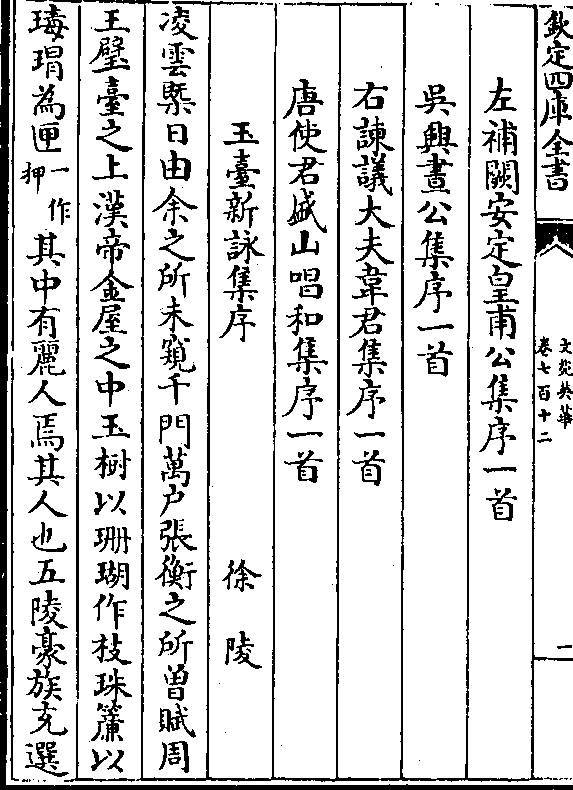 欽定四庫全書
文苑英華
卷七百十二
二
左補闕安定皇甫公集序一首
吳興晝公集序一首
右諫議大夫韋君集序一首
唐使君盛山唱和集序一首
玉臺新詠集序 徐陵
凌雲槩日由余之所未窺千門萬户張衡之所曽賦周
王璧臺之上漢帝金屋之中玉樹以珊瑚作枝珠簾以
瑇瑁為匣一作押其中有麗人焉其人也五陵豪族充選